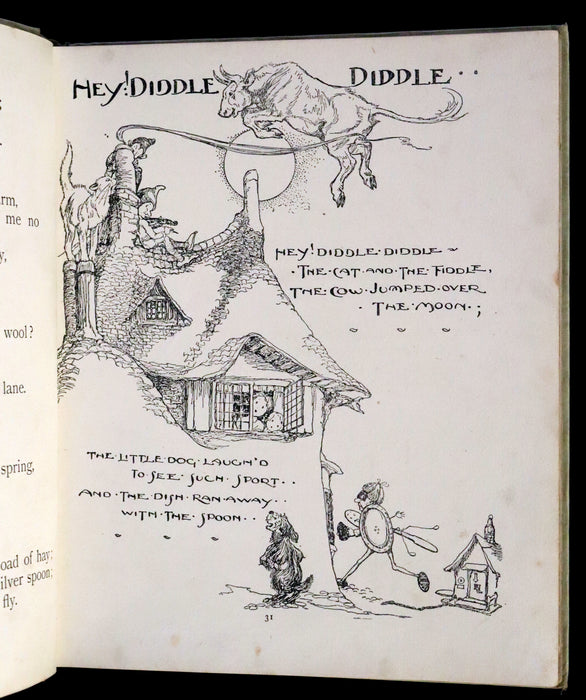 arm,
me no
y,
wool?
lane.
spring,
oad of hay;
ilver spoon;
fly.
HEY! DIDDLE DIDDLE··
HEY! DIDDLE·DIDDLE ~
·THE·CAT·AND·THE·FIDDLE,
THE·COW·JUMPED·OVER
·THE·MOON·;
THE·LITTLE·DOG·LAUGH'D
TO·SEE·SUCH·SPORT··
AND·THE·DISH·RAN·AWAY··
WITH·THE·SPOON··
31